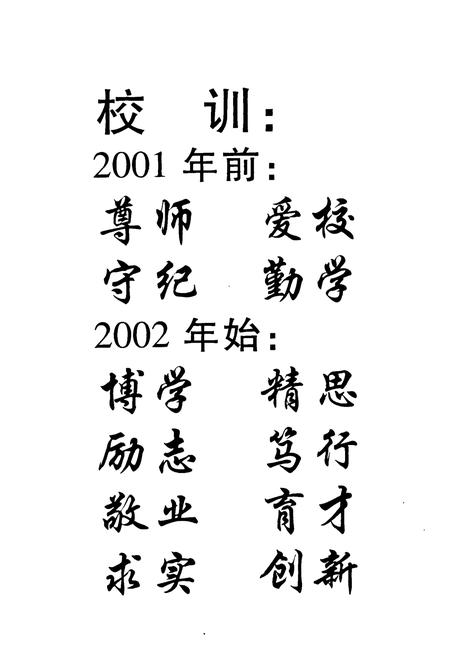 校 训：
2001 年前：
尊师 爱校
守纪 勤学
2002 年始：
博学 精思
励志 笃行
敬业 育才
求实 创新